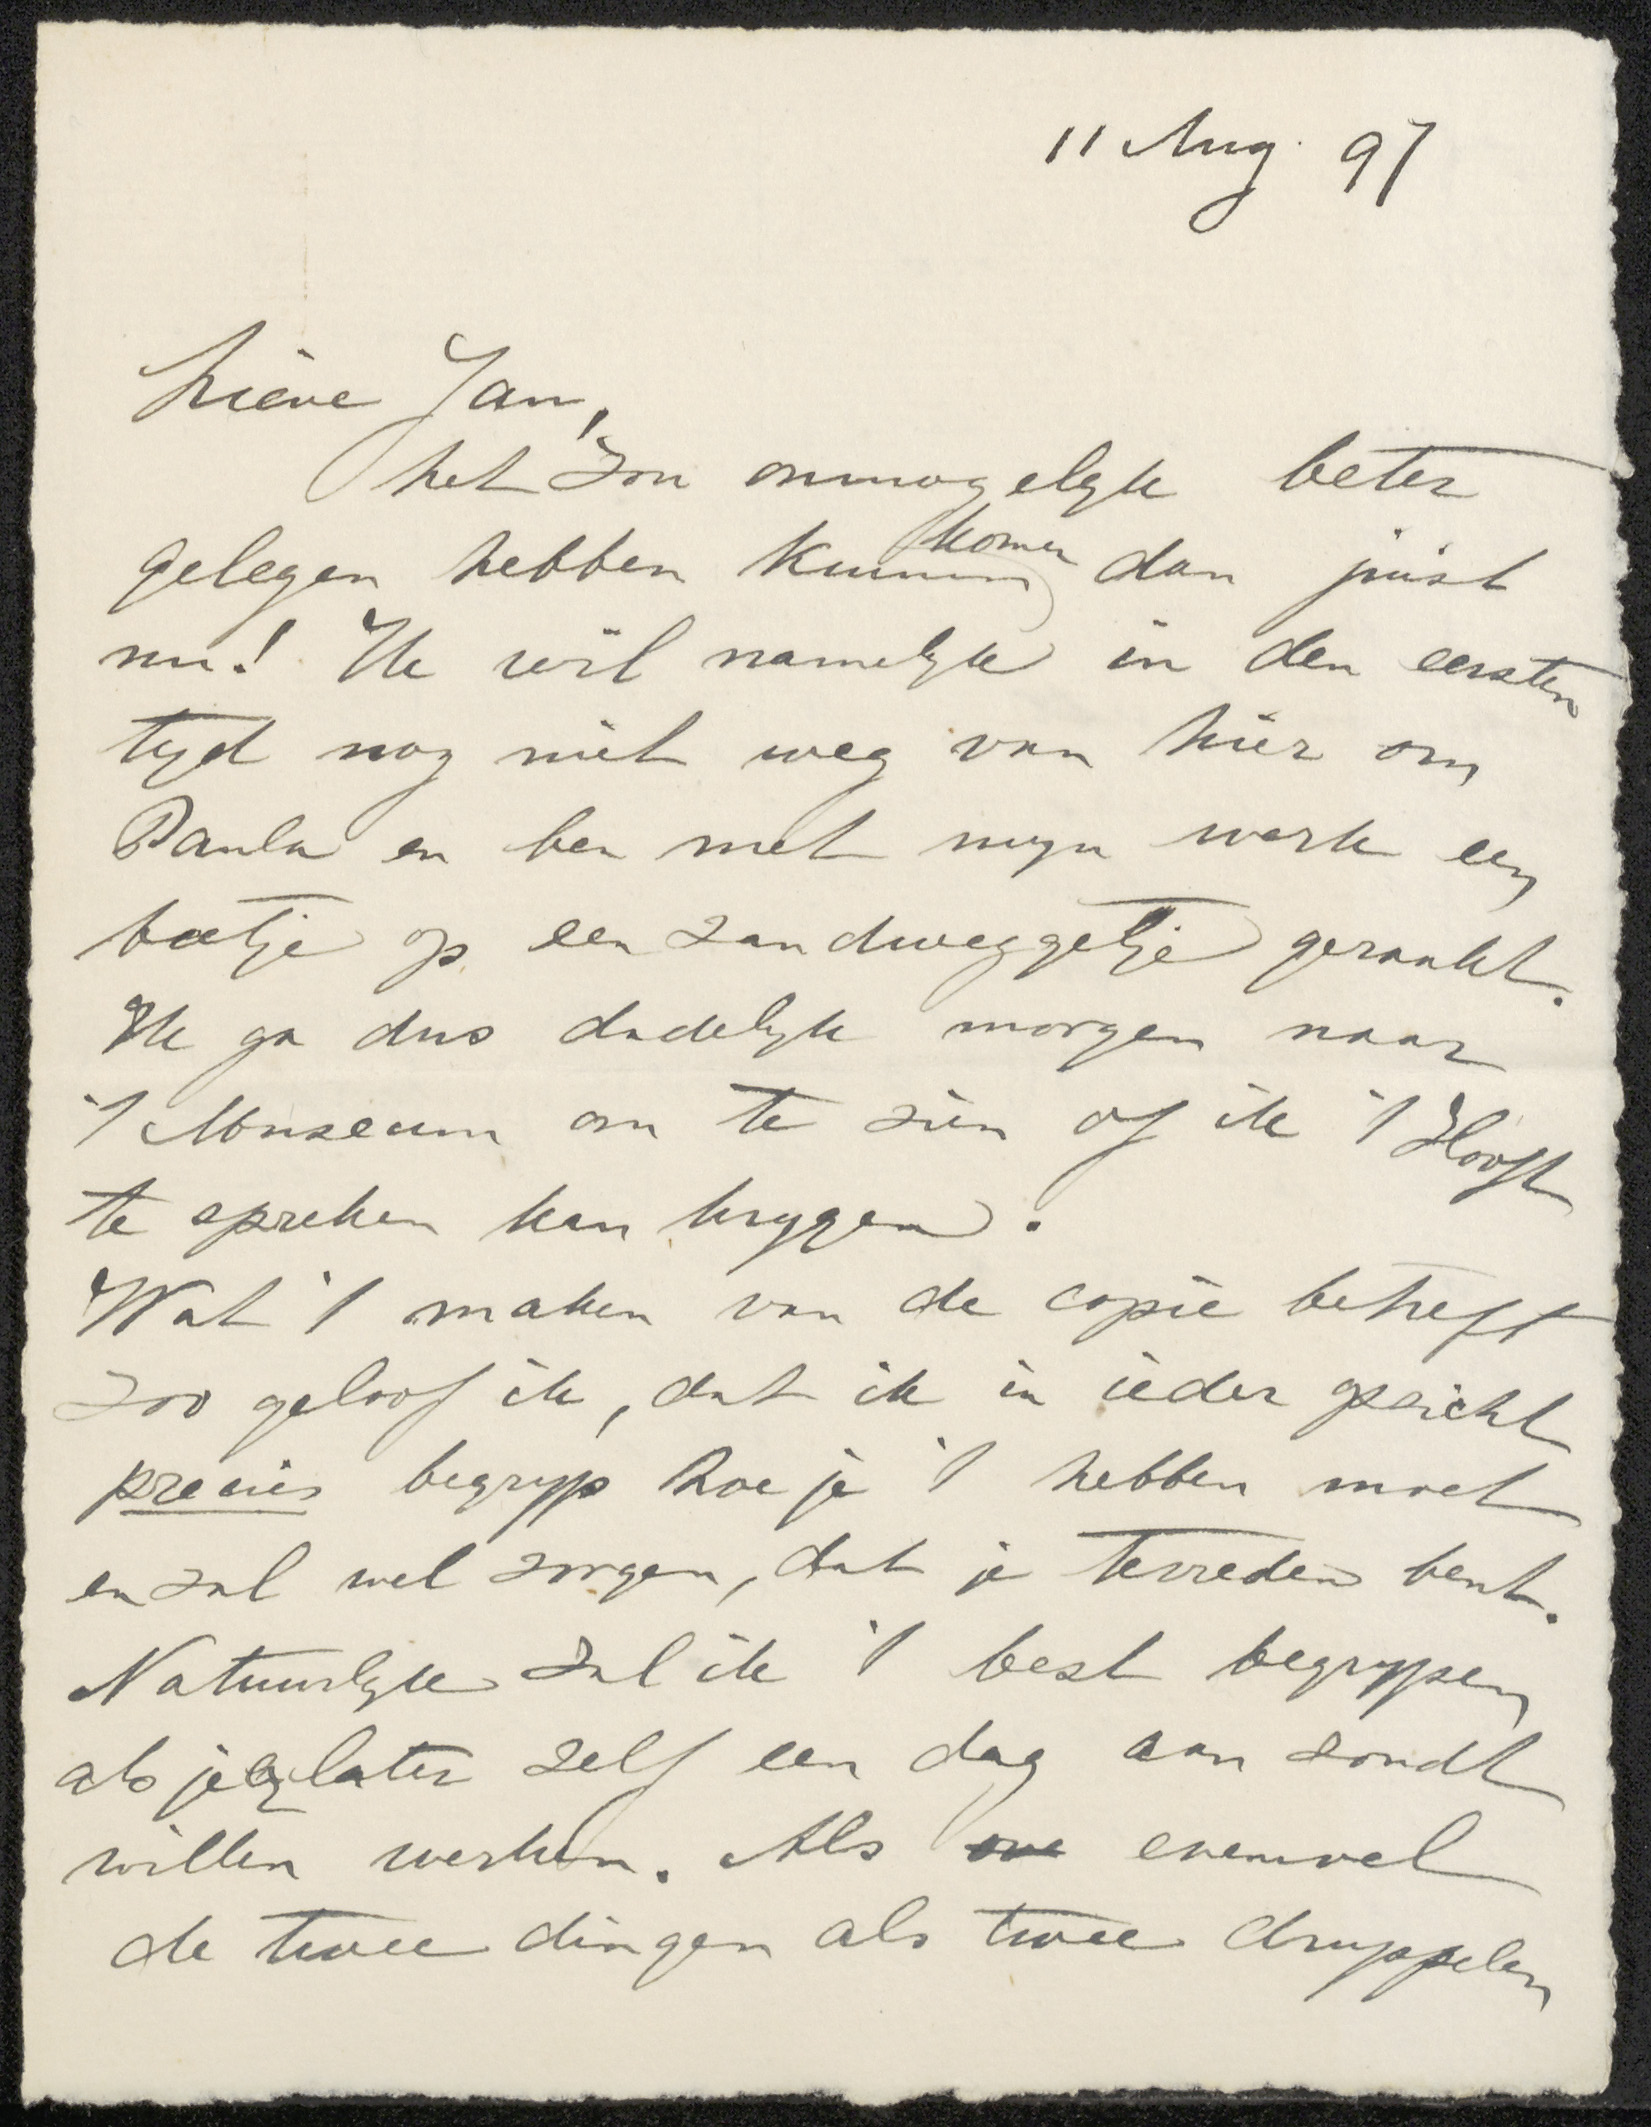 11 Aug. 97
Lieve Jan,
het zou onmogelyk beter
gelegen hebben kunnen komen dan juist
nu! Ik wil namelyk in den eersten
tyd nog niet weg van hier om
Paula en ben met myn werk een
beetje op een zandweggetje geraakt.
Ik ga dus dadelyk morgen naar
't Museum om te zien of ik 't Hooft
te spreken kan krygen.
Wat 't maken van de copie betreft
zoo geloof ik, dat ik in ieder opzicht
precies begryp hoe je 't hebben moet
en zal wel zorgen, dat je tevreden bent.
Natuurlyk zal ik 't best begrypen
als je er later zelf een dag aan zoudt
willen werken. Als ove evenwel
de twee dingen als twee druppelen